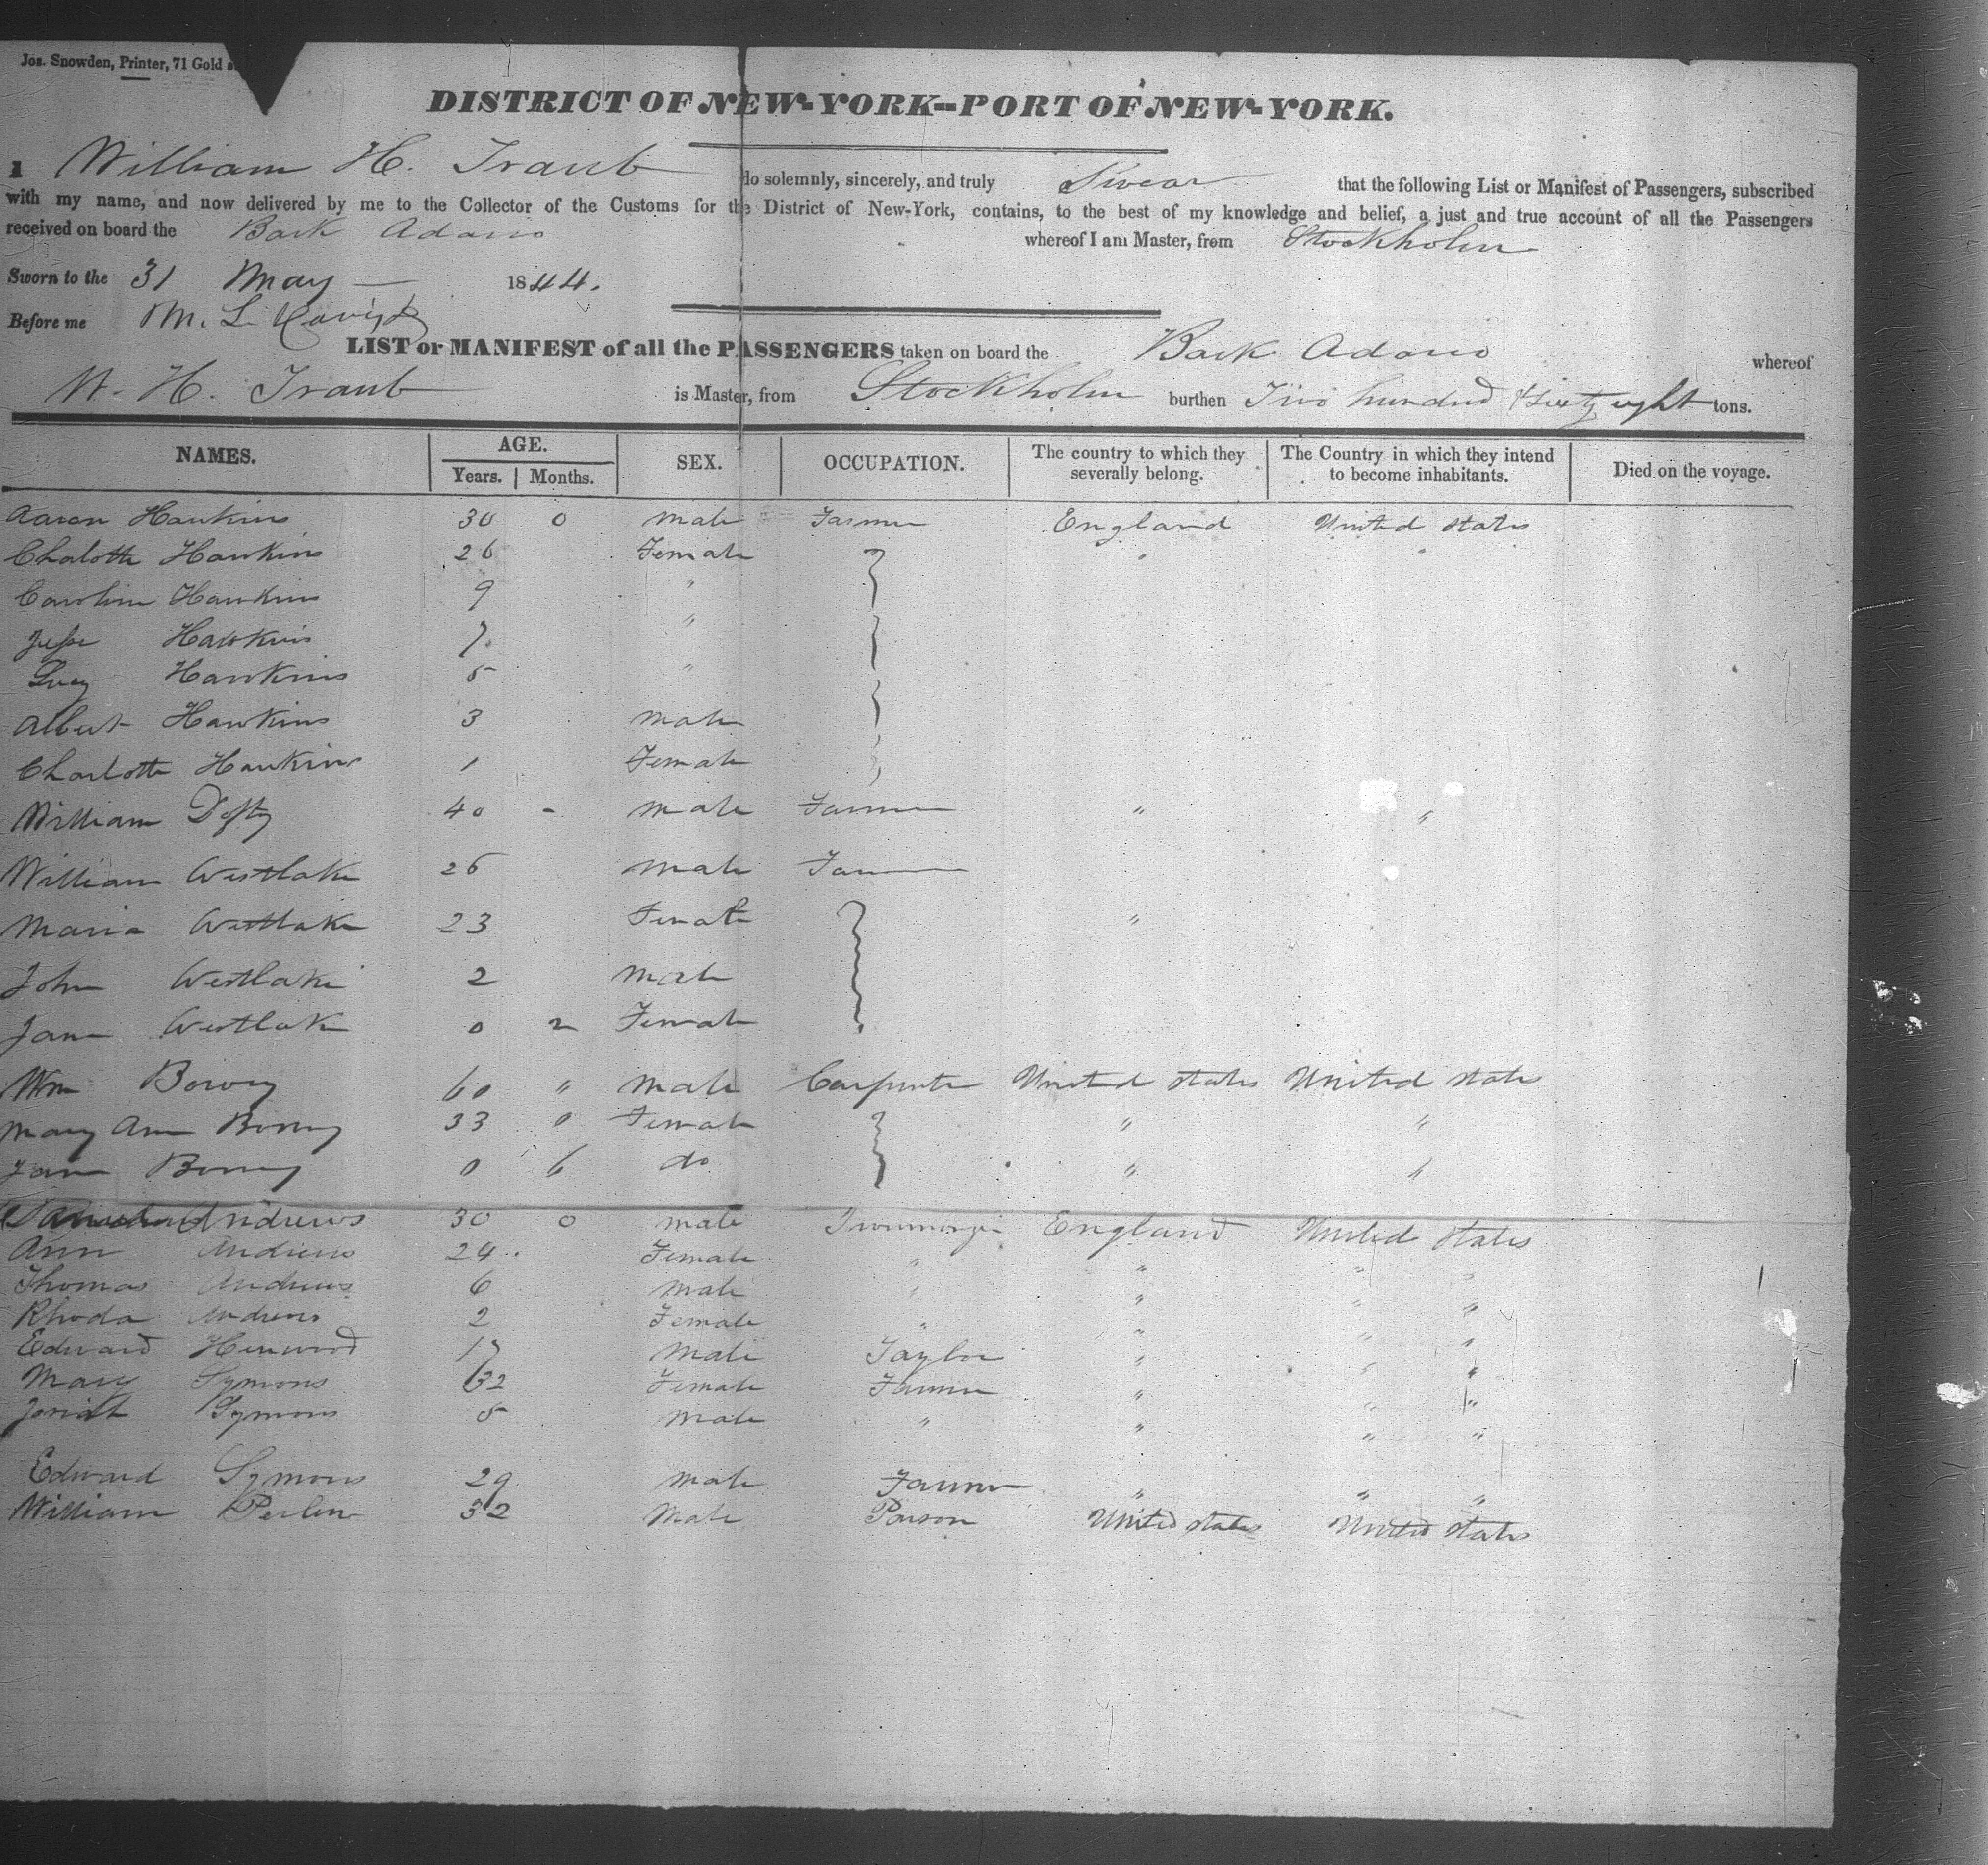 Jos. Snowden, Printer, 71 Gold
DISTRICT OF NEW-YORK--PORT OF NEW-YORK.
I William H. Traub do solemnly, sincerely, and truly Swear that the following List or Manifest of Passengers, subscribed
with my name, and now delivered by me to the Collector of the Customs for the District of New-York, contains, to the best of my knowledge and belief, a just and true account of all the Passengers
received on board the Bark Adario whereof I am Master, from Stockholm
Sworn to the 31 May 1844.
Before me M. L.
LIST or MANIFEST of all the PASSENGERS taken on board the Bark Adario whereof
W. H. Traub is Master, from Stockholm burthen Two hundred & Sixty eight tons.
NAMES. AGE. Years. Months. SEX. OCCUPATION. The country to which they severally belong. The Country in which they intend to become inhabitants. Died on the voyage.
Aaron Hawkins 30 0 male Farmer England United States
Chalotte Hawkins 26 Female " "
Caroline Hawkins 9 "
Jesse Hawkins 7 "
Lucy Hawkins 5 "
Albert Hawkins 3 male
Charlotte Hawkins 1 Female
William Defty 40 - male Farmer " "
William Westlake 26 male Farmer
Maria Westlake 23 Female "
John Westlake 2 male
Jane Westlake 0 2 Female
Wm Bowry 60 " male Carpenter United States United States
Mary Ann 33 0 Female " "
Jane 0 6 do " "
Andrews 30 0 male Ironmonger England United States
Ann Andrews 24 Female " " " "
Thomas Andrews 6 male " " " "
Rhoda Andrews 2 Female " " " "
Edward Henwood 17 male Taylor " " "
Mary Symons 32 Female Farmer " " "
Symons 5 male " " " "
Edward Symons 29 male Farmer " " "
William 32 Male United States United States